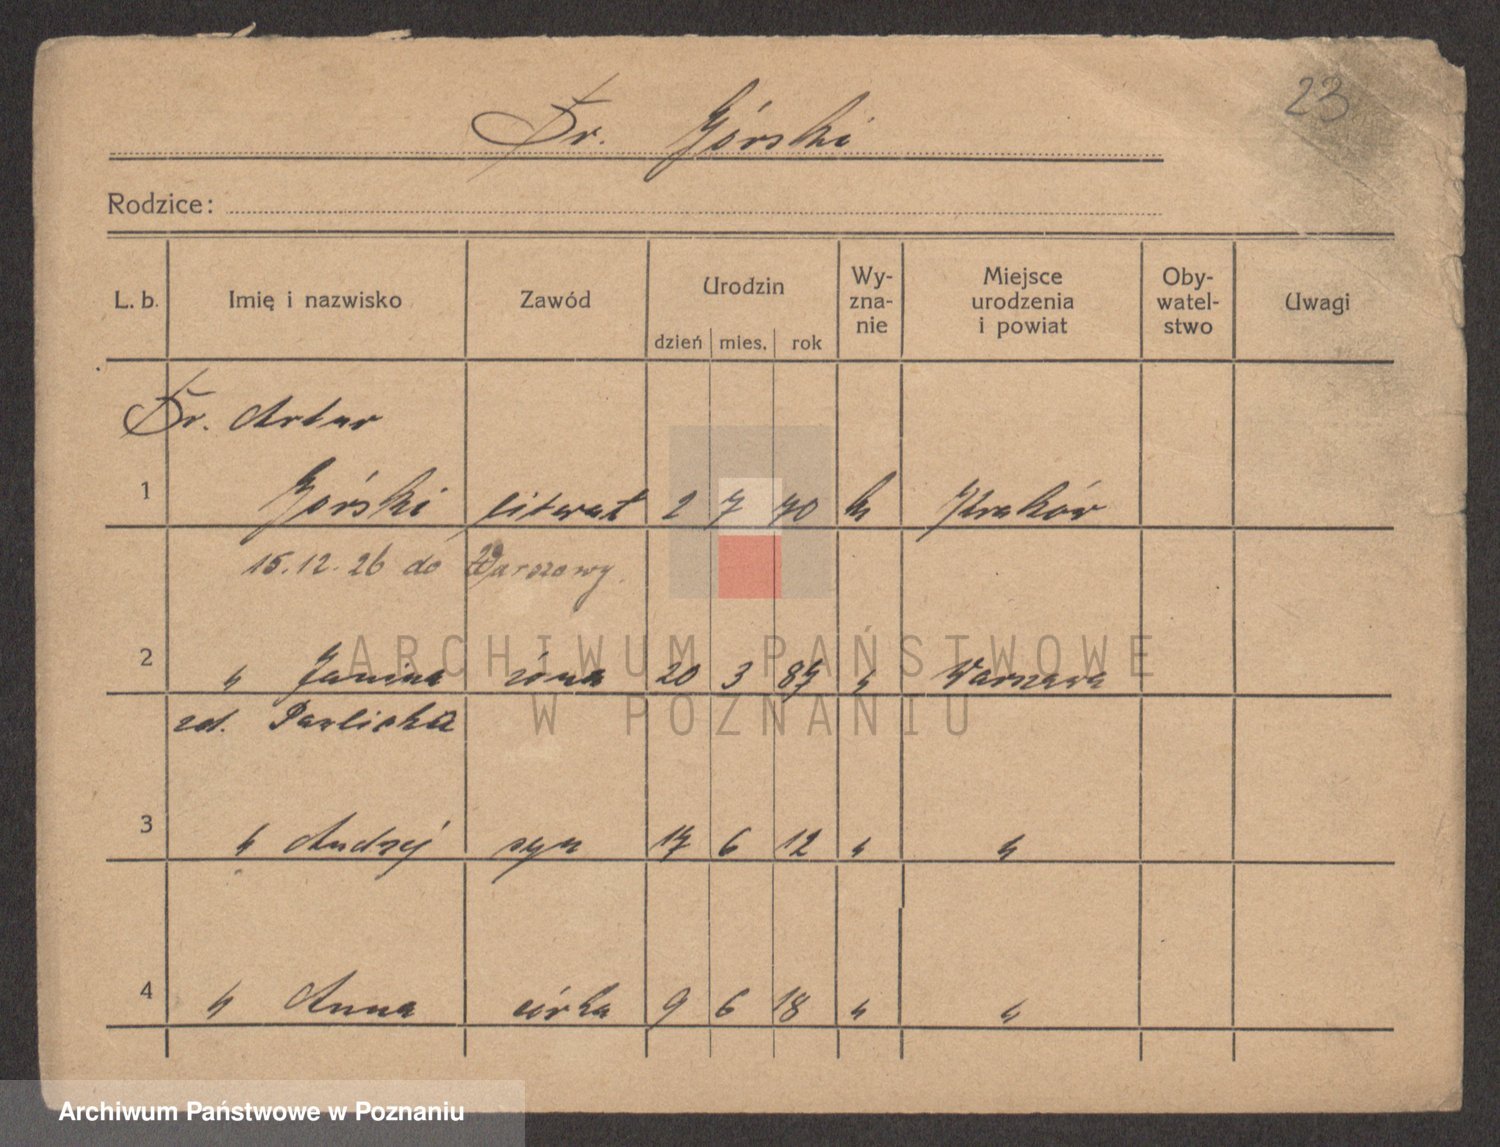 23
Dr. Górski
Rodzice:
L. b. Imię i nazwisko Zawód Urodzin dzień mies. rok Wy-zna-nie Miejsce urodzenia i powiat Oby-watel-stwo Uwagi
Dr. Artur
1 Górski literat 2 7 70 k Kraków
15.12.26 do Warszawy.
2 " Janina żona 20 3 87 " Warszawa
zd.
3 " Andrzej syn 17 6 12 " "
4 " Anna córka 9 6 18 " "
ARCHIWUM PAŃSTWOWE
W POZNANIU
Archiwum Państwowe w Poznaniu